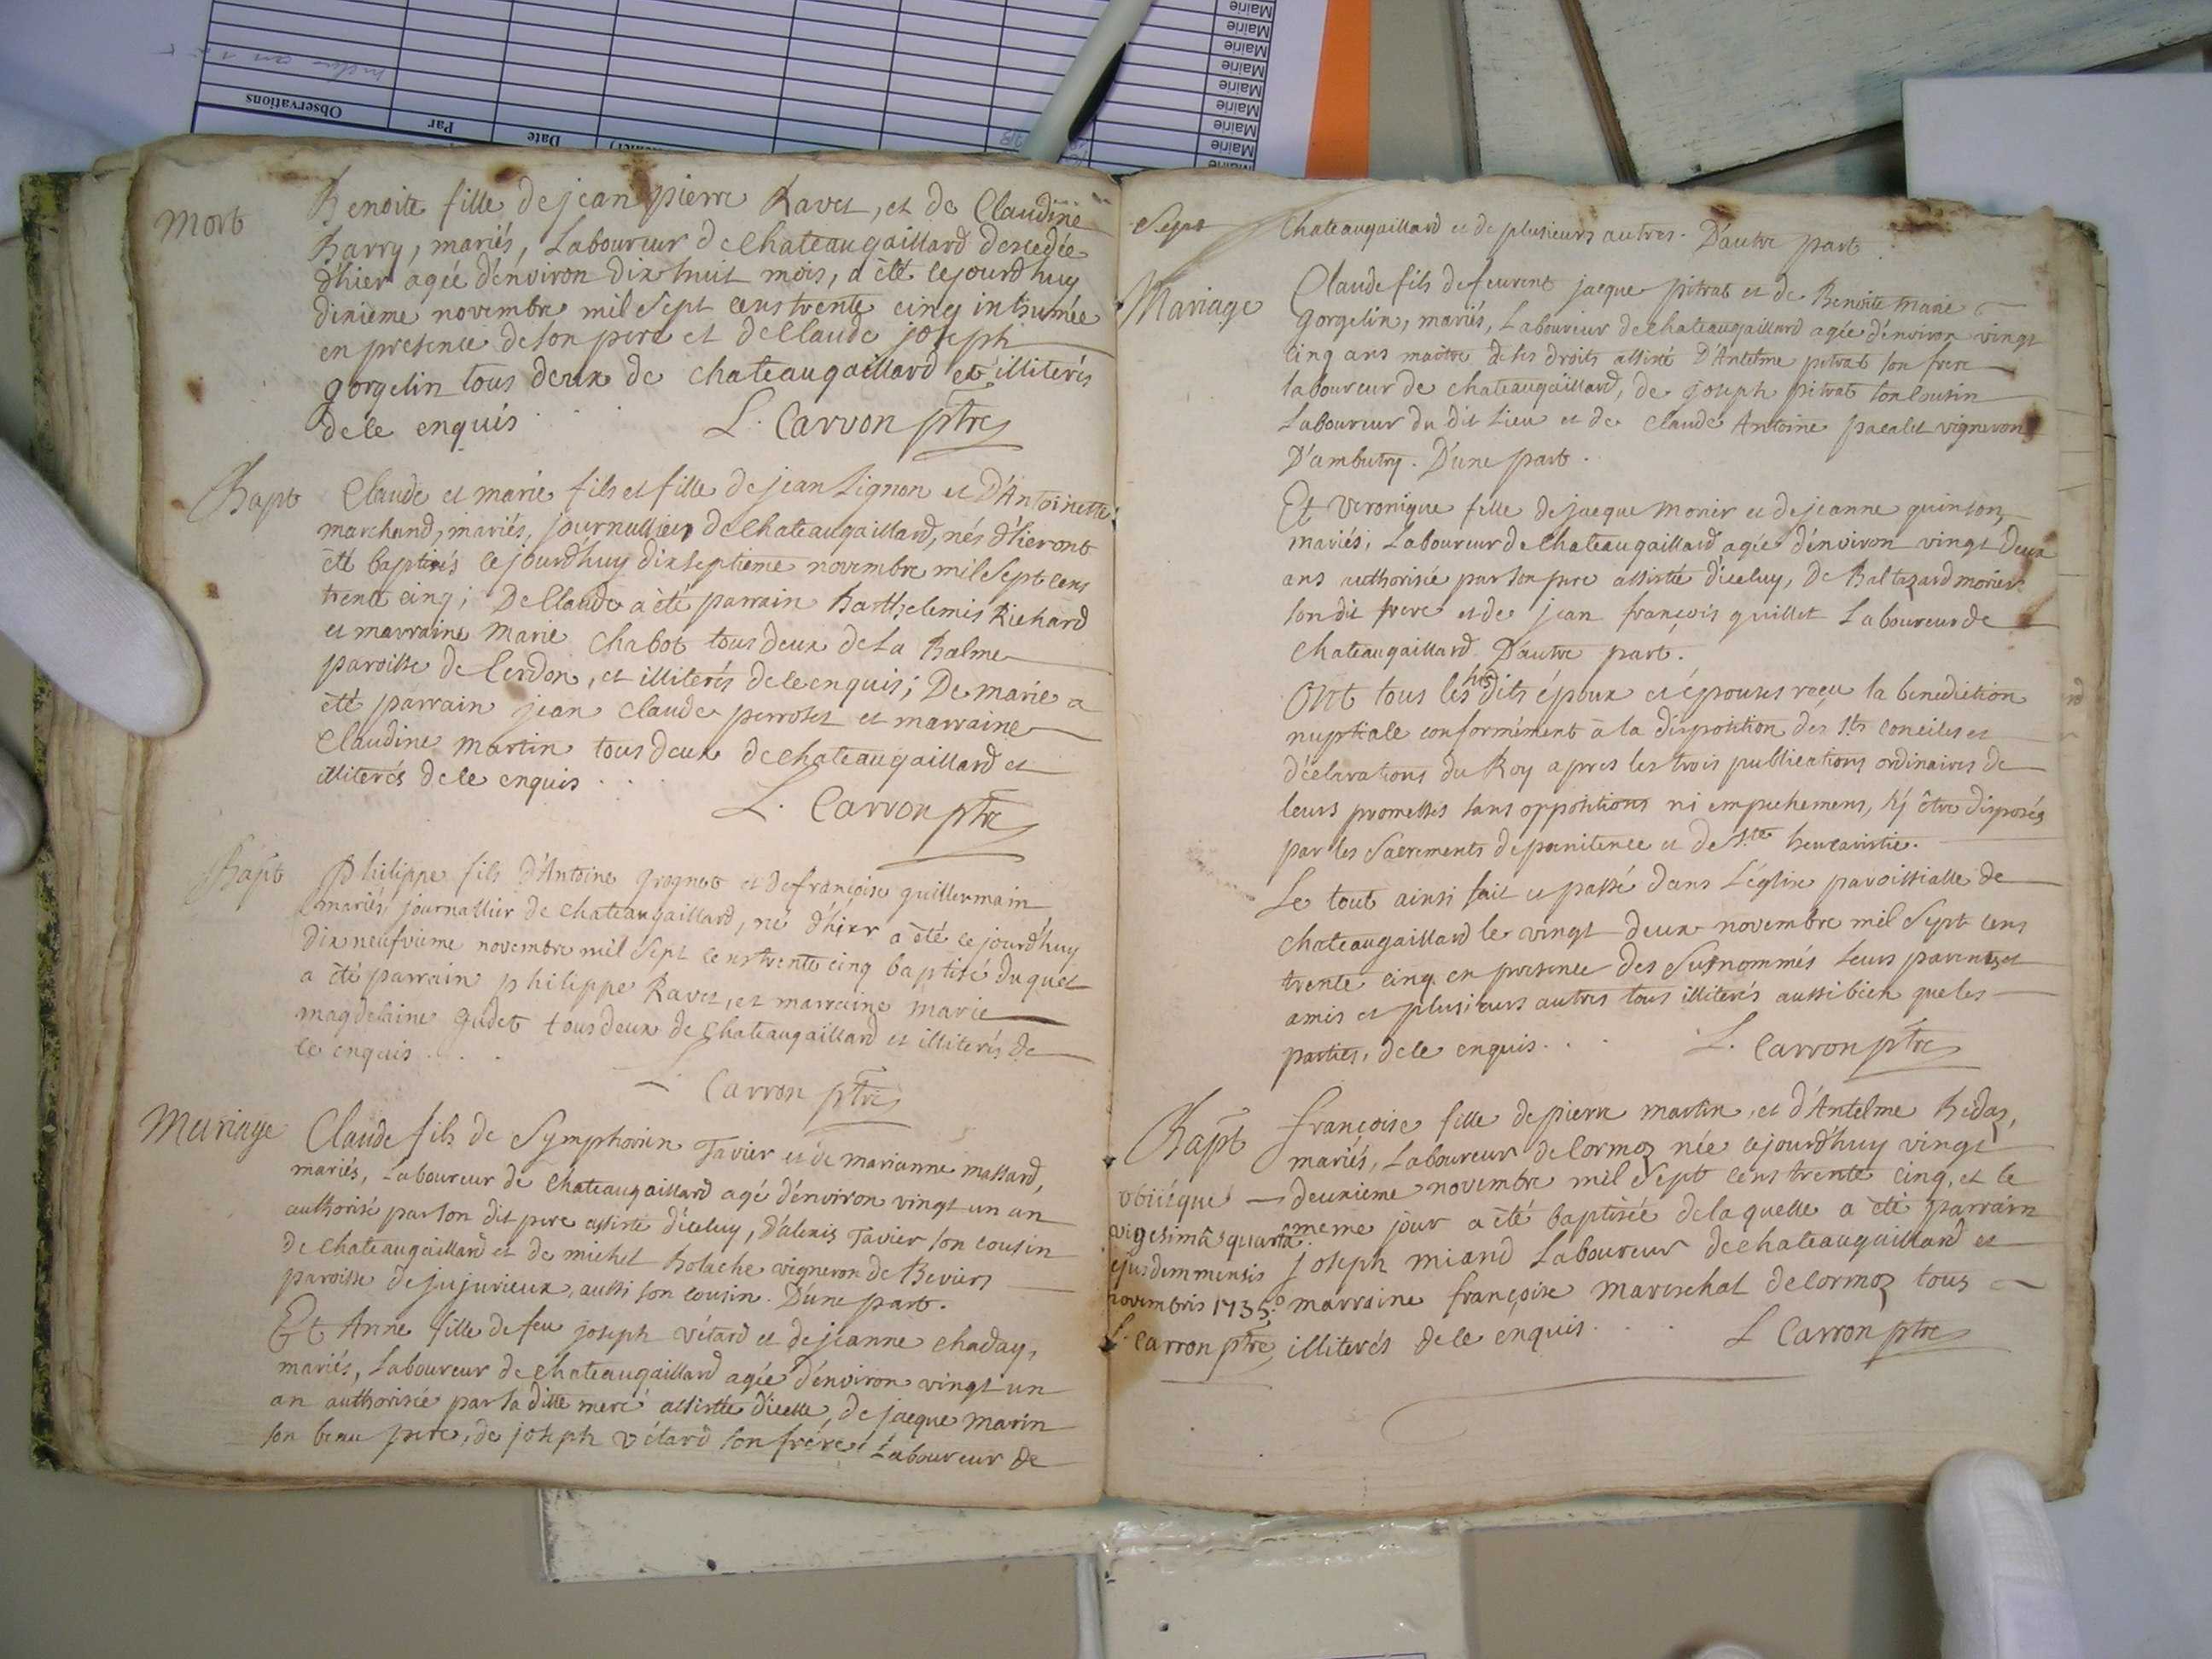 Mairie
Mairie
Mairie
Mairie
Mairie
Mairie
Mairie
Mairie
Observations
Par
Date
Mort
Benoite fille de jean pierre Ravet, et de Claudine
Barry, mariés, Laboureur de Chateaugaillard decedée
d'hier agée d'énviron dix huit mois, a èté cejourd'huy
dixieme novembre mil sept cens trente cinq inhumée
en presence de son pere et de Claude joseph
gorgelin tous deux de chateaugaillard et illiterés
de ce enquis L. Carron ptre
Bapt
Claude et marie fils et fille de jean Lignon et D'Antoinette
marchand, mariés, journallier de chateaugaillard, nés d'hier ont
èté baptisés ce jourd'huy dixseptieme novembre mil sept cens
trente cinq; De Claude a èté parrain Barthelemis Richard
et marraine Marie Chabot tous deux de La Balme
paroisse de Cerdon, et illiterés de ce enquis; De marie a
èté parrain jean claude perroset et marraine
Claudine Martin tous deux de chateaugaillard et
illiterés de ce enquis
L. Carron ptre
Bapt
Philippe fils d'Antoine grognet et de françoise guillermain
mariés, journallier de chateaugaillard, né d'hier a èté ce jourd'huy
dix neufvieme novembre mil sept cens trente cinq baptisé duquel
a èté parrain philippe Ravet, et marraine marie
magdelaine gudet tous deux de Chateaugaillard et illiterés de
ce enquis
Carron ptre
Mariage
Claude fils de Symphorien Tavier et de marianne massard,
mariés, Laboureur de chateaugaillard agé d'énviron vingt un an
authorisé par son dit pere assisté d'iceluy, d'alexis Tavier son cousin
de chateaugaillard et de michel Bolache vigneron de Beviers
paroisse de jujurieux, aussi son cousin. D'une part.
Et Anne fille de feu joseph vétard et de jeanne chaday,
mariés, Laboureur de chateaugaillard agée d'énviron vingt un
an authorisée par sa ditte mere assistée d'icelle, de jacque Marin
son beau pere, de joseph vétard son frere, Laboureur de
Chateaugaillard et de plusieurs autres. D'autre part
Mariage
Claude fils de feu jacque pitrat et de Benoite Marie
gorgelin, mariés, Laboureur de chateaugaillard agée d'énviron vingt
cinq ans maitre de ses droits assisté D'Antelme pitrat son frere
laboureur de chateaugaillard, de joseph pitrat son cousin
Laboureur du dit Lieu et de Claude Antoine pacalet vigneron
D'ambutry. D'une part.
Et Veronique fille de jacque Monir et de jeanne quinson,
mariés, Laboureur de Chateaugaillard agée d'énviron vingt deux
ans authorisée par son pere assistée d'iceluy, de Baltazard morier
son dit frere et de jean françois guillet Laboureur de
Chateaugaillard D'autre part.
Ont tous les sus dits époux et épouses reçu la benediction
nuptiale conformément à la disposition des Sts conciles et
declarations du Roy apres les trois publications ordinaires de
leurs promesses sans oppositions ni empechemens, s'y être disposés
par les Sacrements de penitence et de Ste heucaristie.
Le tout ainsi fait et passé dans L'église paroissialle de
chateaugaillard le vingt deux novembre mil sept cens
trente cinq en presence des Susnommés leurs parents et
amis et plusieurs autres tous illiterés aussi bien que les
parties, de ce enquis L. Carron ptre
Bapt
françoise fille de pierre martin, et d'Antelme Bedaz,
mariés, Laboureur de Cormoz née cejourd'huy vingt
deuxieme novembre mil sept cens trente cinq, et le
meme jour a èté baptisée de laquelle a èté parrain
joseph miand Laboureur de chateaugaillard et
marraine françoise mareschal de Cormoz tous
illiterés de ce enquis L Carron ptre
obiitque
vigesimâ quartâ
ejusdem mensis
novembris 1735.
L. Carron ptre